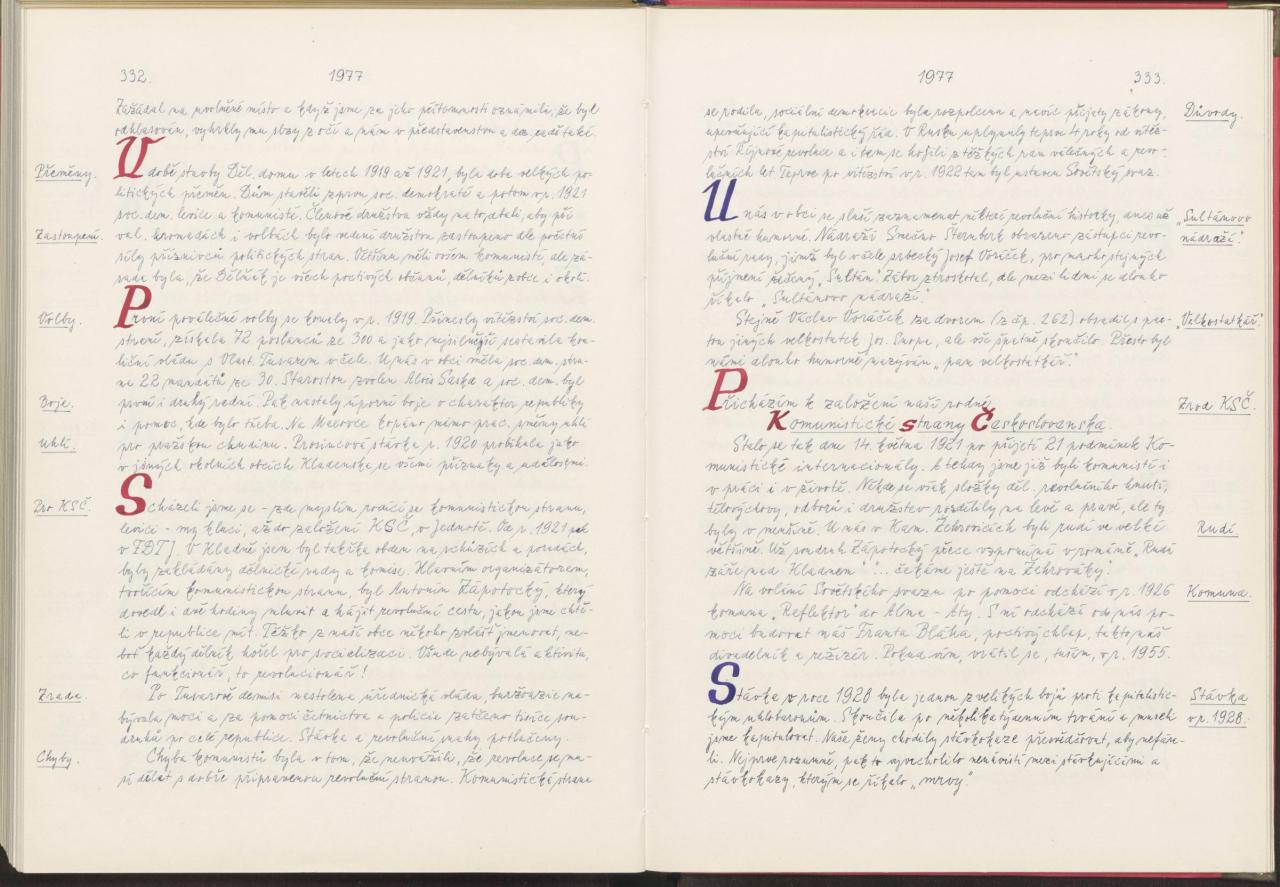 332. 1977
Zažádal na uvolněné místo a když jsme za jeho přítomnosti oznámili, že byl
odhlasován, vyhrkly mu slzy z očí a nám v představenstvu a doz. radě také.
Přeměny.
V době stavby Děl. domu v letech 1919 až 1921, byla doba velkých po-
litických přeměn. Dům stavěli zprvu soc. demokraté a potom v r. 1921
soc. dem. levice a komunisté. Členové družstva vždy na to dbali, aby při
Zastoupení.
val. hromadách i volbách bylo vedení družstva zastoupeno dle početní
síly příznivců politických stran. Většinu měli ovšem komunisté, ale zá-
sada byla, že Dělňák je všech poctivých občanů, dělníků z obce i okolí.
Volby.
První poválečné volby se konaly v r. 1919. Přinesly vítězství soc. dem.
straně, získala 72 poslanců ze 300 a jako nejsilnější sestavila koa-
liční vládu s Vlast. Tusarem v čele. U nás v obci měla soc. dem. stra-
na 22 mandátů ze 30. Starostou zvolen Alois Saska a soc. dem. byl
Boje.
první i druhý radní. Pak nastaly úporné boje o charakter republiky
i pomoc, kde bylo třeba. Na Mayrovce kopáno mimo prac. směny uhlí
Uhlí.
pro pražskou chudinu. Prosincová stávka r. 1920 probíhala jako
v jiných okolních obcích Kladenska se všemi příznaky a událostmi.
Pro KSČ.
Scházeli jsme se – zde myslím rodiče se komunistickou stranu,
levici – my kluci, až do založení KSČ, v Jednotě. Od r. 1921 pak
v FDTJ. V Kladně jsem byl takřka obden na schůzích a poradách,
byly zakládány dělnické rady a komise. Hlavním organizátorem,
tvořícím komunistickou stranu, byl Antonín Zápotocký, který
dovedl i dvě hodiny mluvit a hájit revoluční cestu, jakou jsme chtě-
li v republice mít. Těžko z naší obce někoho zvlášť jmenovat, ne-
boť každý dělník hořel pro socializaci. Všude nebývalá aktivita,
co funkcionář, to revolucionář!
Zrada.
Po Tusarově demisi nastolena úřednická vláda, buržoazie na-
bývala moci a za pomoci četnictva a policie zatčeno tisíce sou-
druhů po celé republice. Stávka a revoluční snahy potlačeny.
Chyby.
Chyba komunistů byla v tom, že neuvážili, že revoluce se mu-
sí dělat s dobře připravenou revoluční stranou. Komunistická strana
1977 333.
Důvody.
se rodila, sociální demokracie byla rozpolcena a navíc přijaty zákony,
upevňující kapitalistický řád. V Rusku uplynuly teprve 4 roky od vítěz-
ství Říjnové revoluce a i tam se hojili z těžkých ran válečných a revo-
lučních let. Teprve po vítězství v r. 1922 tam byl ustaven Sovětský svaz.
„Sultánovo
nádraží“.
U nás v obci se sluší zaznamenat některé revoluční historky, dnes už
vlastně humorné. Nádraží Smečno Šternberk obsazeno zástupci revo-
luční rady, jímž byl v čele srbecký Josef Voráček, pro mnoho stejných
příjmení řečený „Sultán“. Zábor ztroskotal, ale mezi lidmi se dlouho
říkalo „Sultánovo nádraží“.
„Velkostatkář“.
Stejně Václav Voráček za dvorem (z čp. 262) obsadil s par-
tou jiných velkostatek Jos. Šnopa, ale vše špatně skončilo. Přesto byl
námi dlouho humorně nazýván „pan velkostatkář“.
Zrod KSČ.
Přicházím k založení naší rodné
Komunistické strany Československa.
Stalo se tak dne 14. května 1921 po přijetí 21 podmínek Ko-
munistické internacionály. A tehdy jsme již byli komunisté i
v práci i v životě. Někde se však složky děl. revolučního hnutí,
tělovýchovy, odborů i družstev rozdělily na levé a pravé, ale ty
Rudí.
byly v menšině. U nás v Kam. Žehrovicích byli rudí ve velké
většině. Už soudruh Zápotocký přece vzpomíná v románě, „Rudá
záře nad Kladnem“ „... čekáme ještě na Žehrováky“.
Komuna.
Na volání Sovětského svazu po pomoci odchází v r. 1926
komuna „Reflektor“ do Alma – Aty. S ní odchází od nás po-
moci budovat náš Franta Bláha, poctivý chlap, takto náš
divadelník a režizér. Pokud vím, vrátil se, tuším, v r. 1955.
Stávka
v r. 1928.
Stávka v roce 1928 byla jednou z velikých bojů proti kapitalistic-
kým uhlobaronům. Skončila po několikatýdenním trvání a museli
jsme kapitulovat. Naše ženy chodily stávkokaze přesvědčovat, aby nefára-
li. Nejprve rozumně, pak to vyvrcholilo nenávistí mezi stávkujícími a
stávkokazy, kterým se říkalo „mrvy“.